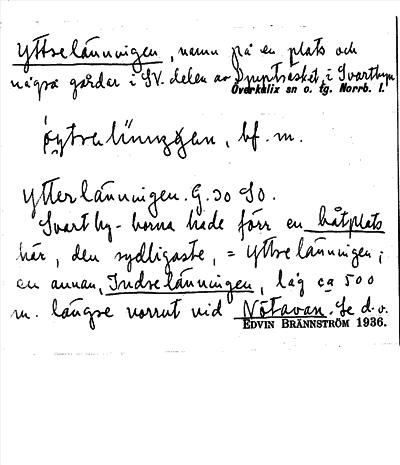 Yttselänningen, namn på en plats och
några gårdar i SV. delen av Sympträsket, i Svartbyn
Överkalix sn o. tg. Norrb. l.
bf. m.
Ytterlänningen. G. 30 SO.
Svartby-borna hade förr en båtplats
här, den sydligaste, = Yttselänningen;
en annan, Indselänningen, låg ca 500
m. längre norrut vid Nötavan. Se d. o.
EDVIN BRÄNNSTRÖM 1936.